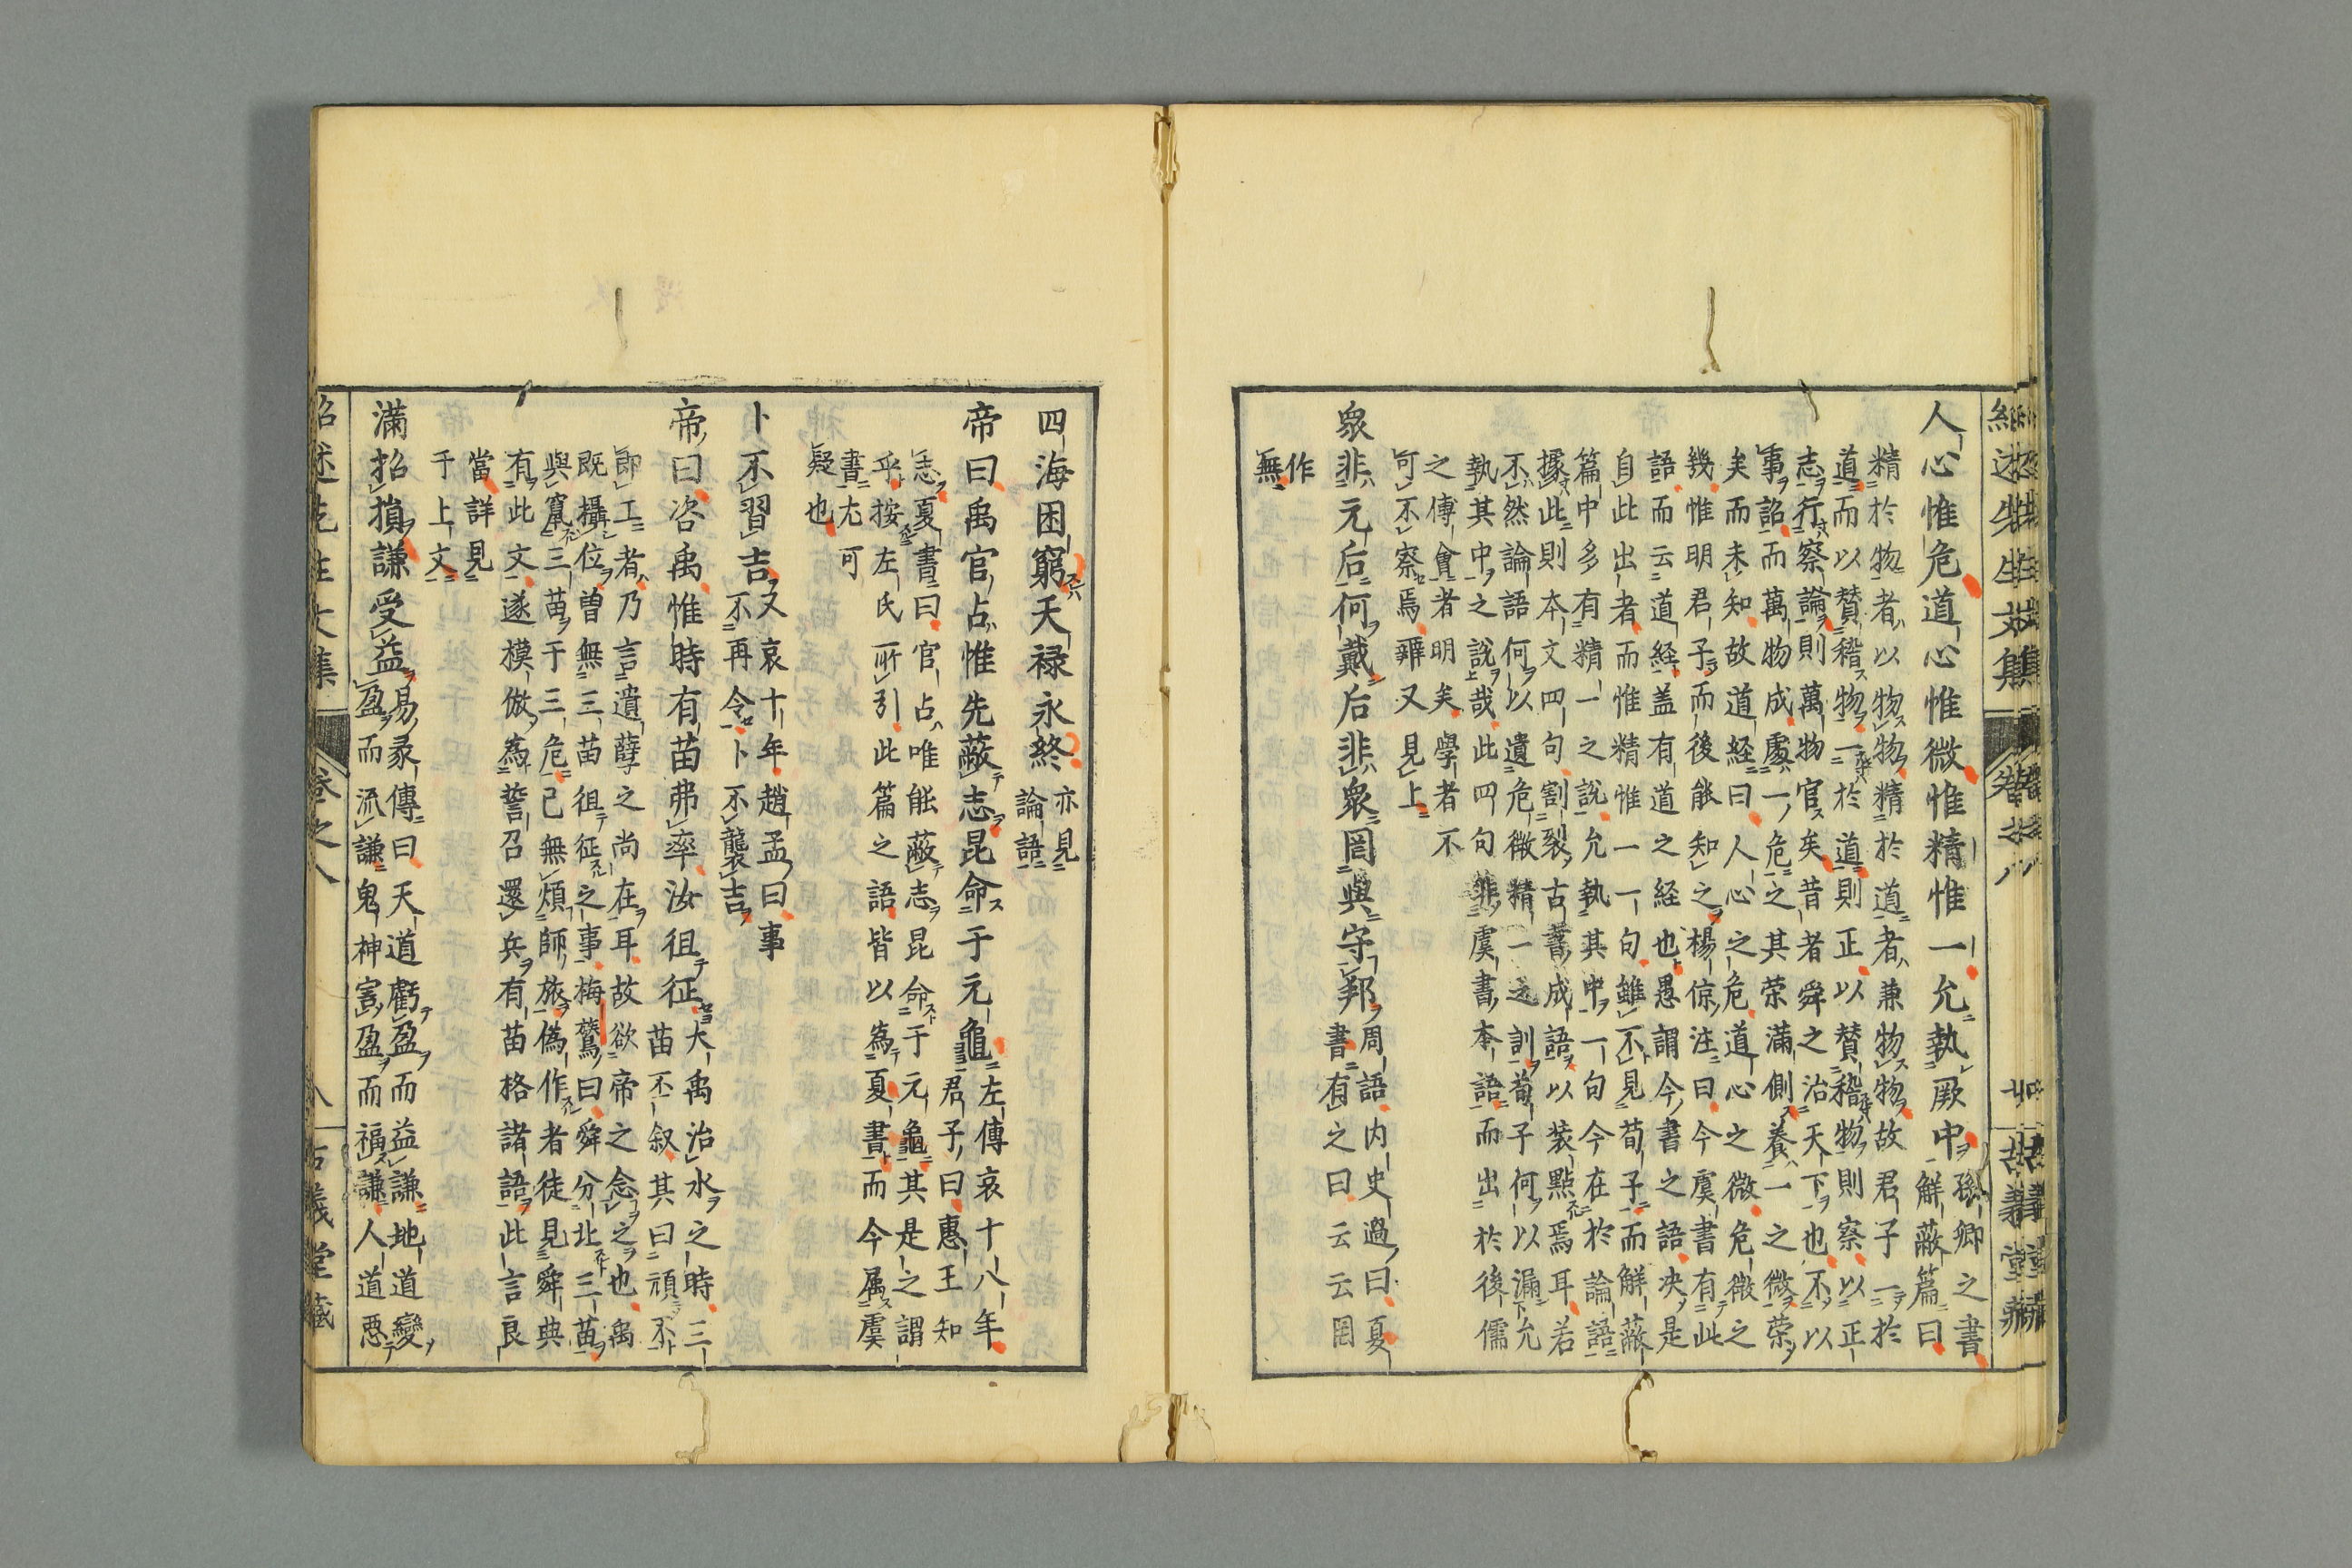 人心惟危道心惟微惟精惟一允執厥中孫卿之書
解蔽篇曰
精於物者以物物精於道者兼物物故君子一於
道而以賛稽物一於道則正以賛稽物則察以正
志行察論則萬物官矣昔者舜之治天下也不以
事詔而萬物成處一危之其荣滿側養一之微荣
矣而未知故道經曰人心之危道心之微危微之
幾惟明君子而後能知之楊倞注曰今虞書有此
語而云道經盖有道之経也愚謂今書之語决是
自此出者而惟精惟一一句雖不見荀子而解蔽
篇中多有精一之説允執其中一句今在於論語
據此則本文四句割裂古書成語以装點焉耳若
不然論語何以遺危微精一之訓荀子何以漏允
執其中之説哉此四句非虞書本語而出於後儒
之傅會者明矣學者不
可不察焉辨又見上
衆非元后何戴后非衆罔與守邦周語内史過曰夏
書有之曰云云罔
作
無
四海困窮天禄永終亦見
論語
帝曰禹官占惟先蔽志昆命于元龜左傳哀十八年
君子曰惠王知
志夏書曰官占唯能蔽志昆命于元龜其是之謂
乎按左氏所引此篇之語皆以為夏書而今属虞
書尤可
疑也
卜不習吉又哀十年趙孟曰事
不再令卜不襲吉
帝曰咨禹惟時有苗弗率汝徂征大禹治水之時三
苗不叙其曰頑不
即工者乃言遺孽之尚在耳故欲帝之念之也禹
既攝位曽無三苗徂征之事梅鷟曰舜分北三苗
與竄三苗于三危已無煩師旅偽作者徒見舜典
有此文遂模倣為誓召還兵有苗格諸語此言良
當詳見
于上文
滿招損謙受益易彖傳曰天道虧盈而益謙地道變
盈而流謙鬼神害盈而福謙人道惡
紹述先生文集
卷之八
八
古義堂藏